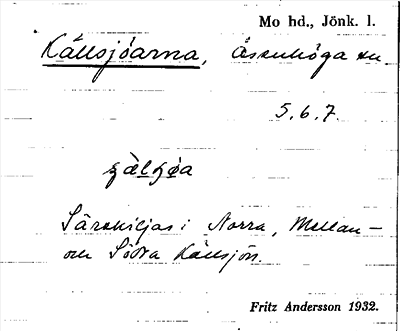 Mo hd., Jönk. l.
Källsjöarna, Åsenhöga sn.
5. 6. 7.
Särskiljas i Norra, Mellan-
och Södra Källsjön.
Fritz Andersson 1932.